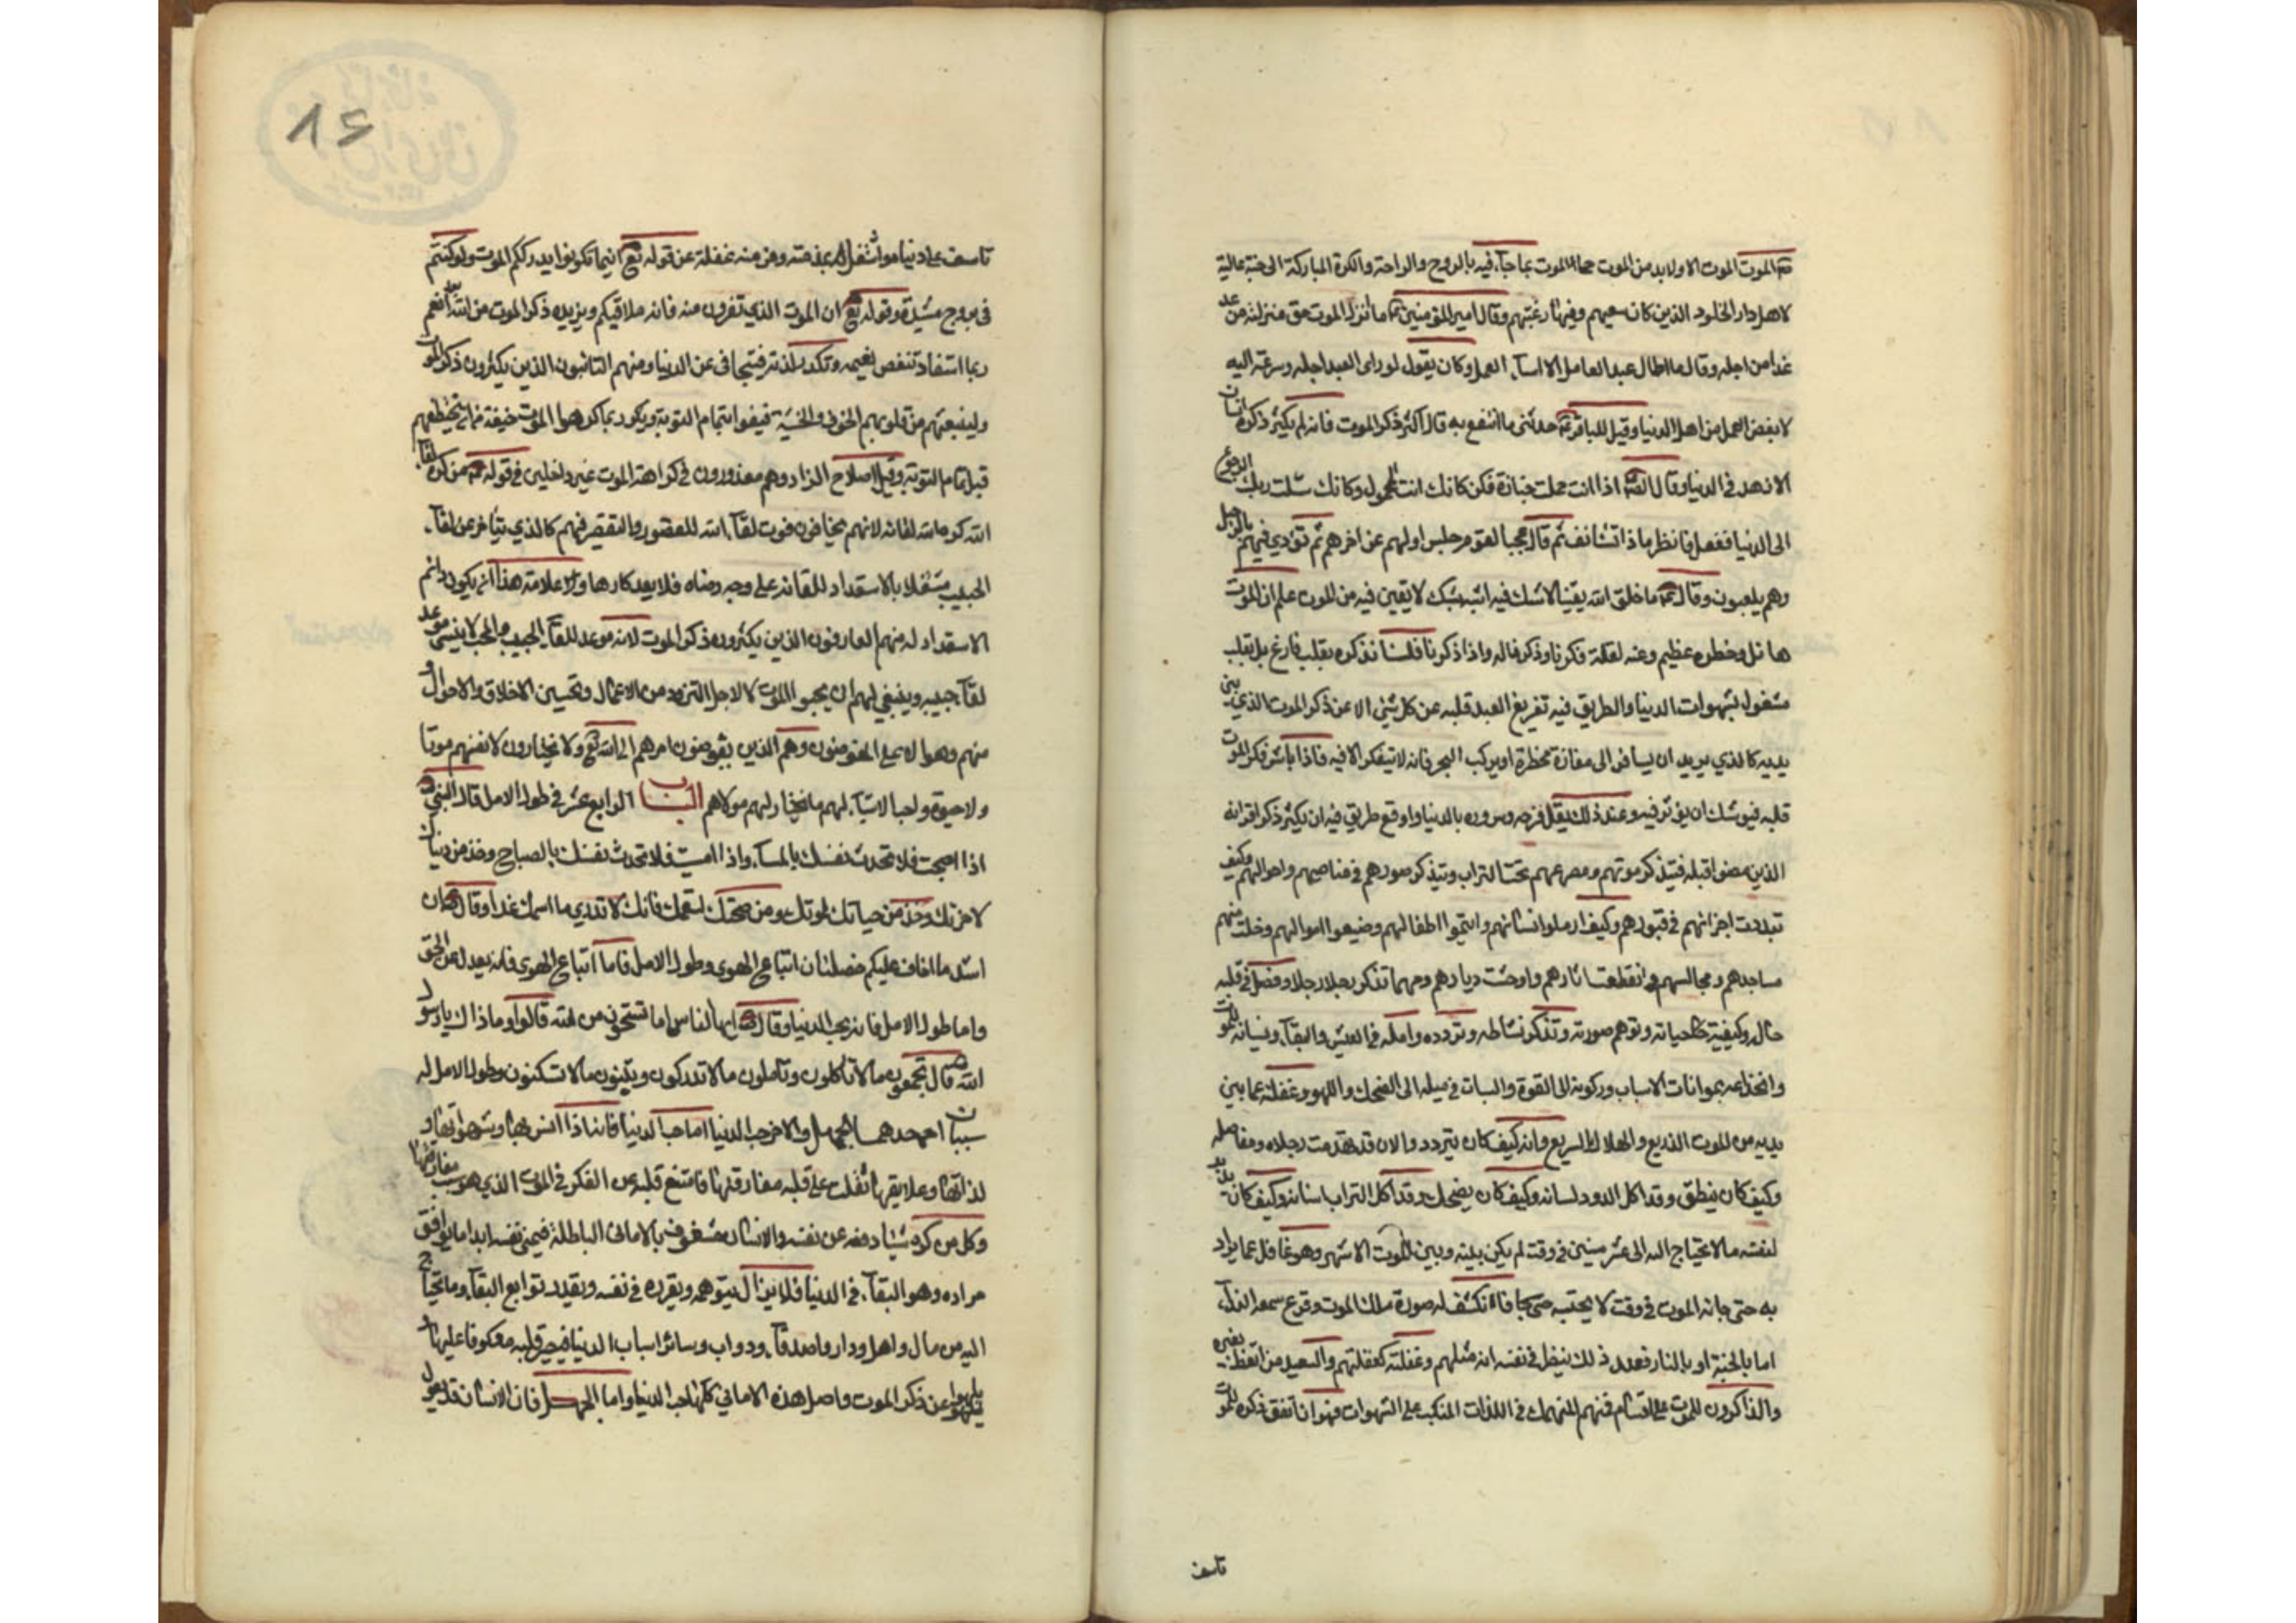 الموت الموت الا ولا بد من الموت جاء الموت بما جاء فيه بالروح والراحة والكرة المباركة الى جنة عالية
لاهل دار الخلود الذين كان سعيهم وفيها رغبتهم وقال امير المؤمنين ما انزل الموت حق منزلته من عد
غدا من اجله وقال ما اطال عبد العامل الا اساء العمل وكان يقول لو راى العبد اجله وسرعته اليه
لابغض العمل من اهل الدنيا وقيل للباقر حدثنى ما انتفع به قال اكثر ذكر الموت فانه لم يكثر ذكره انسان
الا زهد فى الدنيا وقال اذا انت حملت جنازة فكن كانك انت المحمول وكانك سئلت ربك الرجوع
الى الدنيا ففعل فانظر ماذا تستانف ثم قال عجبا لقوم حبس اولهم عن اخرهم ثم نودي فيهم بالرحيل
وهم يلعبون وقال ما خلق الله يقينا لا شك فيه اشبه بشك لا يقين فيه من الموت علم ان الموت
هائل وخطره عظيم وعنه لقلة فكرنا وذكرنا له واذا ذكرنا فلسنا نذكره بقلب فارغ بل بقلب
مشغول بشهوات الدنيا والطريق فيه تفريغ العبد قلبه عن كل شئ الا عن ذكر الموت الذي بين
يديه كالذي يريد ان يسافر الى مفازة مخطرة او يركب البحر فانه لا يتفكر الا فيه فاذا باشر ذكر الموت
قلبه فيوشك ان يؤثر فيه وعند ذلك يقل فرحه وسروره بالدنيا واوقع طريق فيه ان يكثر ذكر اقرانه
الذين مضوا قبله فيتذكر موتهم ومصرعهم تحت التراب ويتذكر صورهم فى مناصبهم واحوالهم وكيف
تبددت اجزائهم فى قبورهم وكيف ارملوا نسائهم وايتموا اطفالهم وضيعوا اموالهم وخلت منهم
مساجدهم ومجالسهم وانقطعت اثارهم واوحشت ديارهم ومهما تذكر رجلا رجلا وفصل فى قلبه
حاله وكيفية حياته وتوهم صورته وتذكر نشاطه وتردده وامله فى العيش والبقاء ونسيانه للموت
وانخداعه بمواتات الاسباب وركونه الى القوة والشباب وميله الى الضحك واللهو وغفلته عما بين
يديه من الموت الذريع والهلاك السريع وانه كيف كان يتردد والان قد تهدمت رجلاه ومفاصله
وكيف كان ينطق وقد اكل الدود لسانه وكيف كان يضحك وقد اكل التراب اسنانه وكيف كان يدبر
لنفسه ما لا يحتاج اليه الى عشر سنين فى وقت لم يكن بينه وبين الموت الا شهر وهو غافل عما يراد
به حتى جائه الموت فى وقت لا يحتسبه فانكشف له صورة ملك الموت وقرع سمعه النداء
اما بالجنة او بالنار فعند ذلك ينظر فى نفسه انه مثلهم وغفلته كغفلتهم والسعيد من اتعظ بغيره
والذاكرون للموت على اقسام فمنهم المنهمك فى اللذات المنكب على الشهوات فهو ان اتفق ذكره للموت
تاسف
٨٤
تاسف على دنياه واشتغل بمذمته وفر منه غفلة عن قوله تع اينما تكونوا يدرككم الموت ولو كنتم
فى بروج مشيدة وقوله تع ان الموت الذي تفرون منه فانه ملاقيكم ويزيده ذكر الموت من الله بعدا نعم
ربما استفاد تنغص نعيمه وتكدر لذته فيتجافى عن الدنيا ومنهم التائبون الذين يكثرون ذكر الموت
ولينبعث من قلوبهم الخوف والخشية فيفوا بتمام التوبة ويكون ربما كرهوا الموت خيفة من ان يختطفهم
قبل تمام التوبة وقبل اصلاح الزاد وهم معذورون فى كراهة الموت غير داخلين فى قوله من كره لقاء
الله كره الله لقائه لانهم يخافون فوت لقاء الله للقصور والتقصير فهم كالذي يتاخر عن لقاء
الحبيب مشتغلا بالاستعداد للقائه على وجه رضاه فلا يعد كارها و علامة هذا انه يكون دائم
الاستعداد له منهم العارفون الذين يكثرون ذكر الموت لانه موعد للقاء الحبيب والمحب لا ينسى موعد
لقاء حبيبه وينبغي لهم ان يحبوا الموت لا لاجل التزود من الاعمال وتحسين الاخلاق والاحوال و
منهم وهم الذين يفوضون امرهم الى الله تع ولا يختارون لانفسهم موتا
ولا حيوة واحب الاشياء لهم ما يختار لهم مولاهم الباب الرابع عشر فى طول الامل قال النبي
اذا اصبحت فلا تحدث نفسك بالمساء واذا امسيت فلا تحدث نفسك بالصباح وخذ من دنياك
لاخرتك وخذ من حياتك لموتك ومن صحتك لسقمك فانك لا تدري ما اسمك غدا وقال ان
اشد ما اخاف عليكم خصلتان اتباع الهوى وطول الامل فاما اتباع الهوى فانه يعدل عن الحق
واما طول الامل فانه يحب الدنيا وقال ايها الناس اما تستحون من الله قالوا وما ذاك يا رسول
الله قال تجمعون ما لا تاكلون وتاملون ما لا تدركون وتبنون ما لا تسكنون وطول الامل له
سببان احدهما الجهل والاخر حب الدنيا اما حب الدنيا فانه اذا انس بها وبشهواتها و
لذاتها وعلايقها ثقلت على قلبه مفارقتها فامتنع قلبه من الفكر فى الموت الذي هو سبب مفارقتها
وكل من كره شيئا دفعه عن نفسه والانسان مشغوف بالاماني الباطلة فيمني نفسه ابدا ما يوافق
مراده وهو البقاء فى الدنيا فلا يزال يتوهمه ويقرره فى نفسه ويقدر توابع البقاء وما يحتاج
اليه من مال واهل ودار واصدقاء ودواب وسائر اسباب الدنيا فيصير قلبه معكوفا عليها
فيلهو عن ذكر الموت واصل هذه الاماني كلها حب الدنيا واما الجهل فان الانسان قد يعول